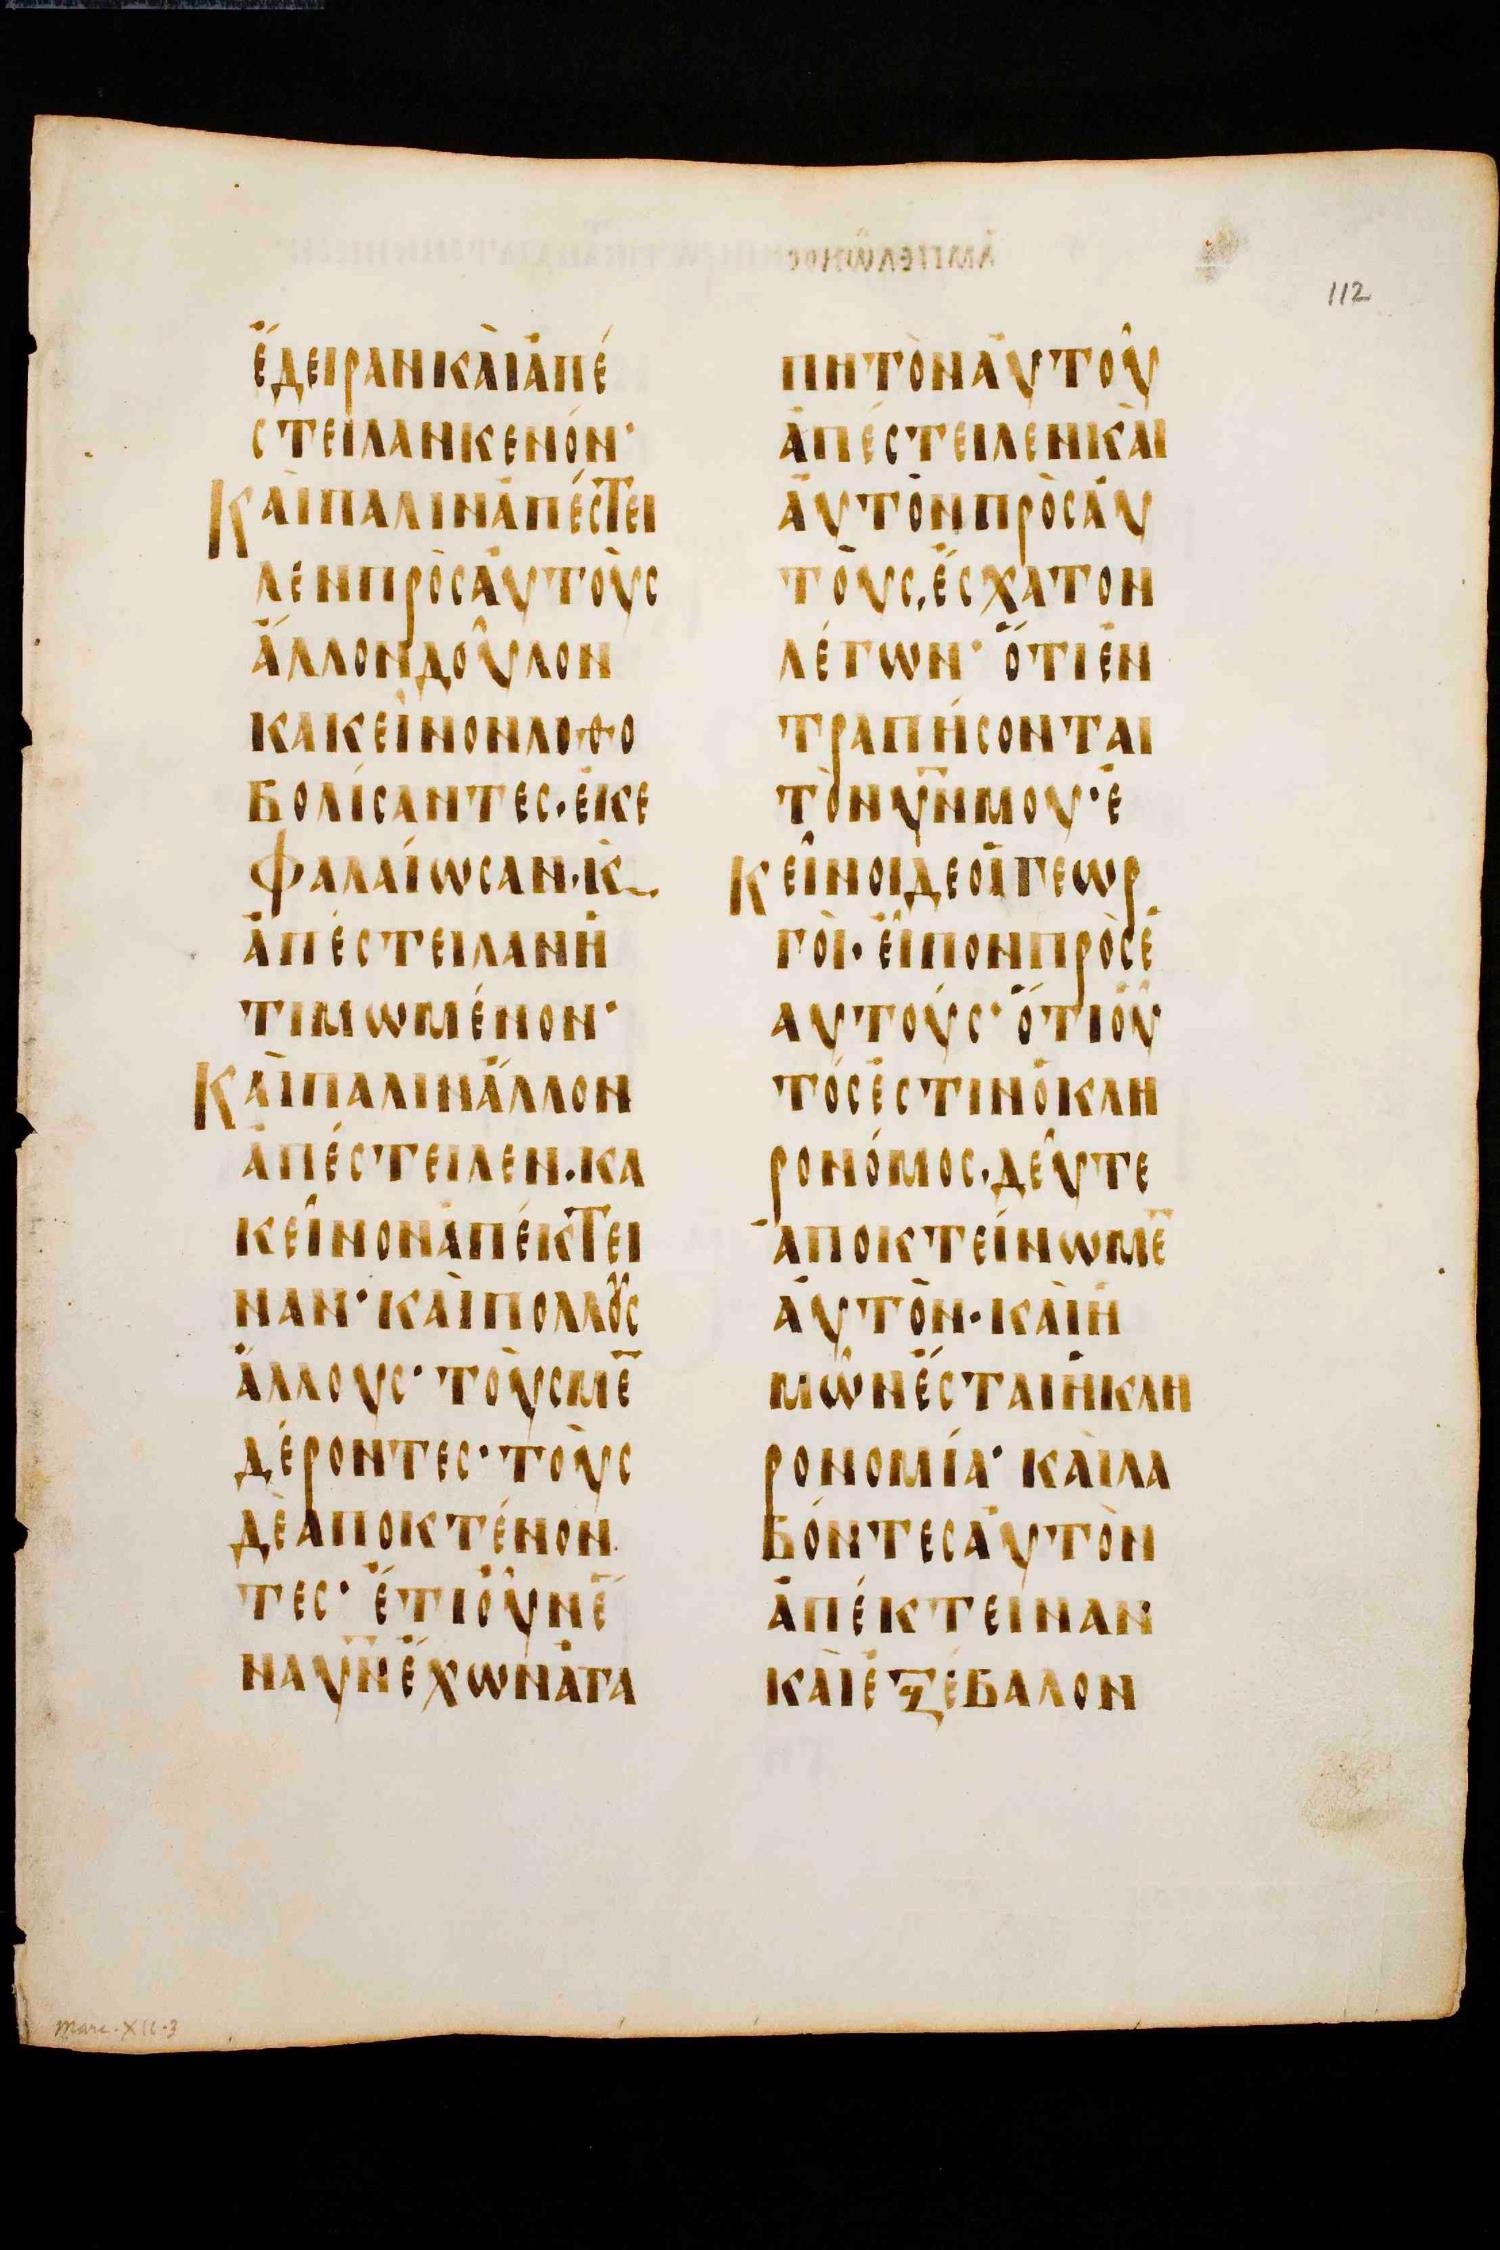 112
ἔδειρανκαὶἀπέ
στειλανκενόν·
Καὶπαλινἀπέστει
λενπρὸσἀυτοὺς
ἄλλονδοῦλον
κακεῖνονλοθο
βολίσαντες·ἐκε
φαλαίωσαν·κ
ἀπέστειλανἠ
τιμωμένον·
Καὶπαλινἄλλον
ἀπέστειλεν·κα
κεῖνονἀπέκτει
ναν·καὶπολλοὺς
ἄλλους·τοὺσμε̄
δέροντες·τοὺς
δὲαποκτένον
τες·ἔτιοῦνἕ
ναυ̅ν̅ἔχωνἀγα
πητὸναὐτοῦ
ἀπέστειλενκαὶ
ἀυτὸνπρὸσἀυ
τοὺς,ἔσχατον
λέγων·ὅτιἐν
τραπήσονται
τὸνυ̅ν̅μου·ἐ
Κεῖνοιδεοἱγεωρ
γὸι·εἶπονπρὸσἑ
αυτούς·ὅτιοὗ
τόσἐστινὁκλη
ρονόμος·δεῦτε
ἀποκτείνωμε̄
ἀυτὸν·καὶἡ
μῶνἔσταιἡκλη
ρονομία·καὶλα
βόντεσἀυτὸν
ἀπέκτειναν
καὶἐξέβαλον
Marc·XII·3